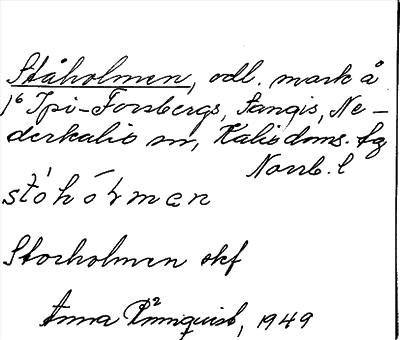 Ståholmen, odl. mark å
1⁶ Ipi-Forsbergs, Sangis, Ne-
derkalix sn, Kalix doms. tg
Norrb. l
stóhólmen
Storholmen skf
Anna Rönnquist, 1949